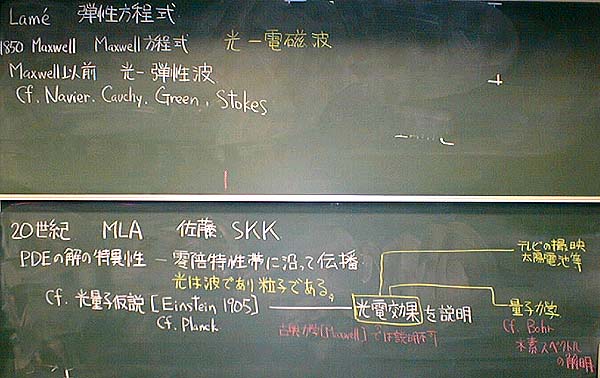 Lamé 弾性方程式
1850 Maxwell Maxwell方程式 光ー電磁波
Maxwell以前 光ー弾性波
Cf. Navier. Cauchy. Green, Stokes
20世紀 MLA 佐藤 SKK
PDEの解の特異性 ー零陪特性帯に沿って伝播
光は波であり粒子である。
Cf. 光量子仮説 [Einstein 1905] 光電効果を説明
Cf. Planck
古典力学[Maxwell]では説明不可
テレビの撮映
太陽電池等
量子力学
Cf. Bohr
水素スペクトル
の解明